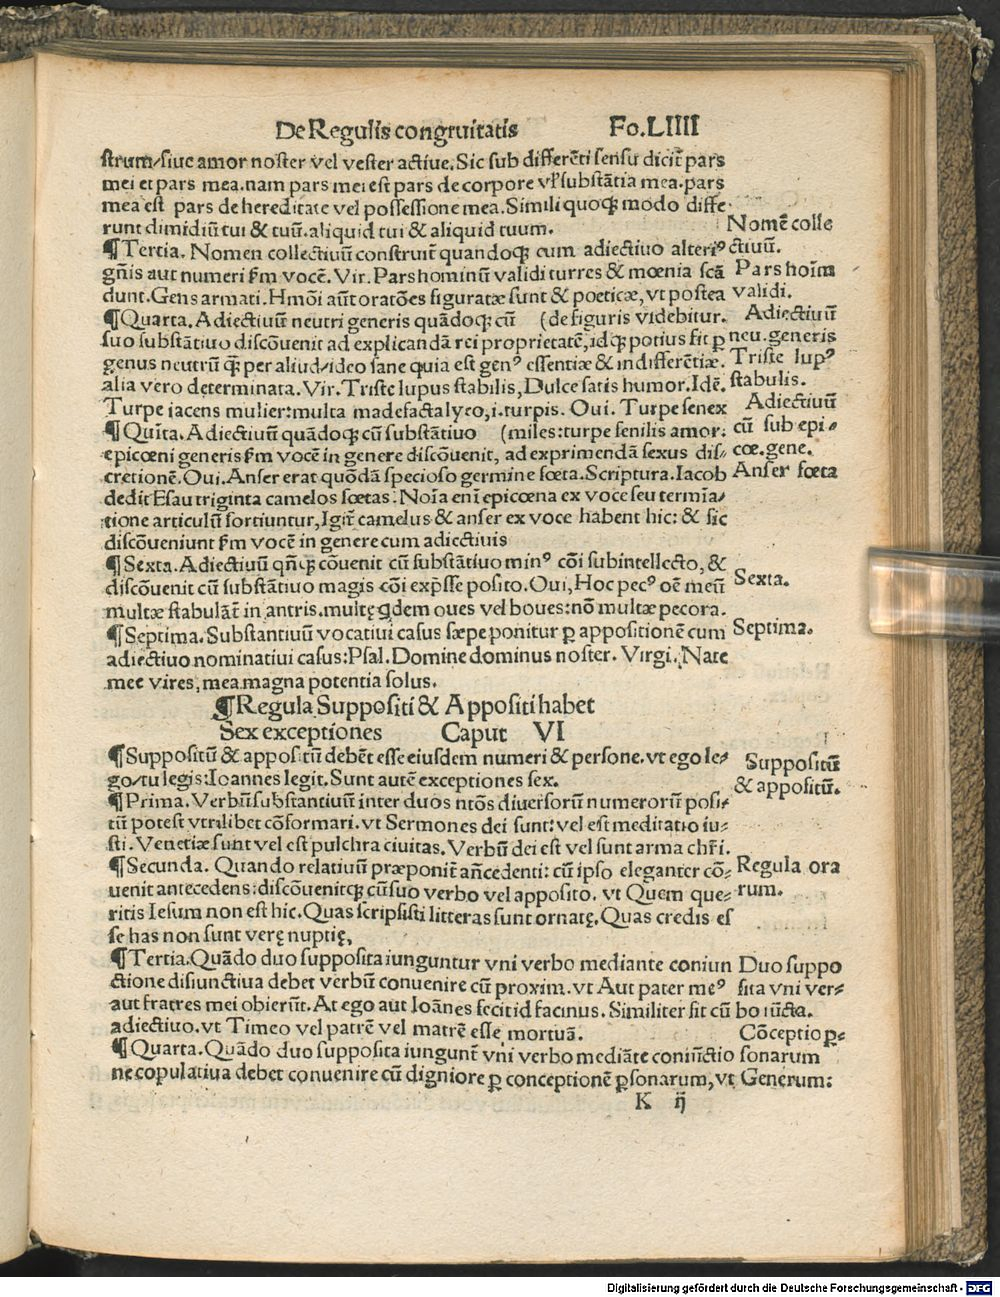 De Regulis congruitatis Fo.LIIII
strum/siue amor noster vel vester actiue.Sic sub differēti sensu dicit᷑ pars
mei et pars mea.nam pars mei est pars de corpore vł substātia mea.pars
mea est pars de hereditate vel possessione mea.Simili quoqꝫ modo diffe-
runt dimidiū tui & tuū.aliquid tui & aliquid tuum.
¶Tertia. Nomen collectiuū construit᷑ quandoqꝫ cum adiectiuo alteriꝰ
gn̄is aut numeri ẜm vocē. Vir. Pars hominū validi turres & mœnia scā
dunt.Gens armati.Hmōi aūt oratōes figuratæ sunt & poeticæ, vt postea
¶Quarta. Adiectiuū neutri generis quādoqꝫ cū (de figuris videbitur.
suo substātiuo discōuenit ad explicandā rei proprietatē, idqꝫ potius fit ꝑ
genus neutrū qꝫ̄ per aliud/ideo sane quia est genꝰ essentiæ & indifferētiæ.
alia vero determinata. Vir. Triste lupus stabilis, Dulce satis humor. Idē.
Turpe iacens mulier:multa madefacta lyeo, i.turpis. Oui. Turpe senex
¶Quīta. Adiectiuū quādoqꝫ cū substātiuo (miles:turpe senilis amor:
epicœni generis ẜm vocē in genere discōuenit, ad exprimendā sexus dis-
cretionē. Oui. Anser erat quōdā specioso germine fœta. Scriptura. Iacob
dedit Esau triginta camelos fœtas: Noīa enī epicœna ex voce seu termīa/
tione articulū sortiuntur, Igit᷑ camelus & anser ex voce habent hic: & sic
discōueniunt ẜm vocē in genere cum adiectiuis
¶Sexta. Adiectiuū qn̄qꝫ cōuenit cū substātiuo minꝰ cōi subintellecto, &
discōuenit cū substātiuo magis cōi exp̄sse posito. Oui, Hoc pecꝰ oē meū
multæ stabulāt in antris. multę qdem oues vel boues:nō multæ pecora.
¶Septima. Substantiuū vocatiui casus sæpe ponitur ꝑ appositionē cum
adiectiuo nominatiui casus:Psal. Domine dominus noster. Virgi. Nate
mee vires, mea magna potentia solus.
¶Regula Suppositi & Appositi habet
Sex exceptiones Caput VI
¶Suppositū & appositū debēt esse eiusdem numeri & persone. vt ego le/
go/tu legis:Ioannes legit. Sunt autē exceptiones sex.
¶Prima. Verbū substantiuū inter duos ntōs diuersorū numerorū posi/
tū potest vtrilibet cōformari. vt Sermones dei sunt: vel est meditatio iu-
sti. Venetiæ sunt vel est pulchra ciuitas. Verbū dei est vel sunt arma chr̄i.
¶Secunda. Quando relatiuū præponit᷑ an̄cedenti: cū ipso eleganter cō-
uenit antecedens: discōuenitqꝫ cū suo verbo vel apposito. vt Quem que-
ritis Iesum non est hic. Quas scripsisti litteras sunt ornatę. Quas credis es
se has non sunt verę nuptię,
¶Tertia. Quādo duo supposita iunguntur vni verbo mediante coniun
ctione disiunctiua debet verbū conuenire cū proxim. vt Aut pater meꝰ
aut fratres mei obierūt. At ego aut Ioānes fecit id facinus. Similiter fit cū
adiectiuo. vt Timeo vel patrē vel matrē esse mortuā.
¶Quarta. Quādo duo supposita iungunt᷑ vni verbo mediāte coniūctio
ne copulatiua debet conuenire cū digniore ꝑ conceptionē ꝑsonarum, vt
K ij
Nomē colle
ctiuū.
Pars hoīm
validi.
Adiectiuū
neu. generis
Triste lupꝰ
stabulis.
Adiectiuū
cū sub epi/
cœ. gene.
Anser fœta
Sexta.
Septima.
Suppositū
& appositū.
Regula ora
rum.
Duo suppo
sita vni ver/
bo iūcta.
Cōceptio ꝑ-
sonarum
Generum:
Digitalisierung gefördert durch die Deutsche Forschungsgemeinschaft - DFG